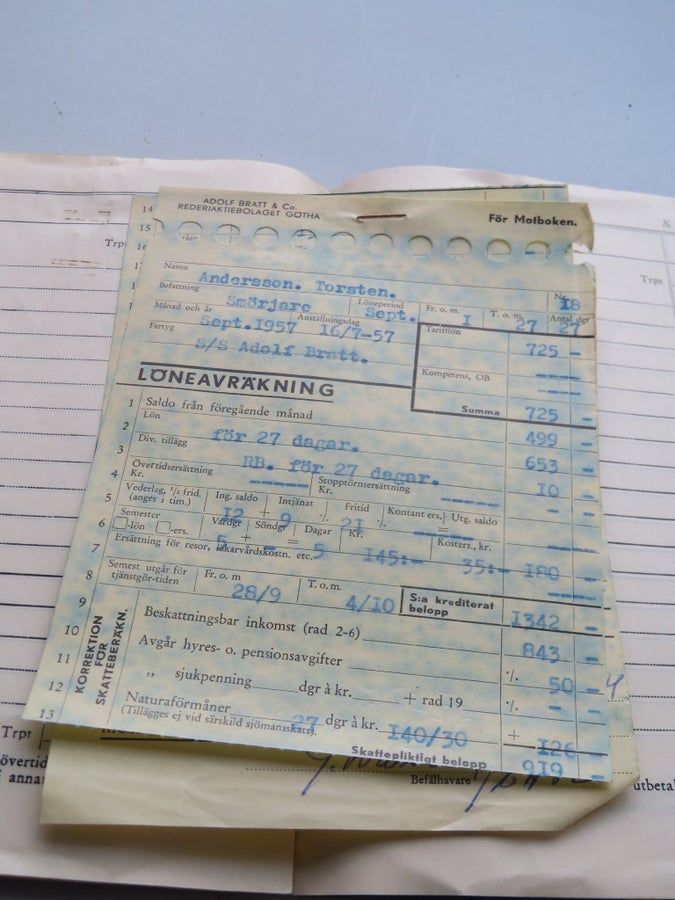 ADOLF BRATT & Co.
REDERIAKTIEBOLAGET GÖTHA
För Motboken.
14
15
16
17
Trpt
K
Trpt
Namn Andersson. Torsten. Nr 18
Befattning Smörjare Löneperiod Sept. Fr. o. m. I T. o. m. 27 Antal dgr 27
Månad och år Sept.1957 Anställningsdag 16/7-57 Tarifflön 725 -
Fartyg S/S Adolf Bratt. Kompetens, OB ----
LÖNEAVRÄKNING Summa 725 -
1 Saldo från föregående månad 499 -
2 Lön för 27 dagar. 653 -
3 Div. tillägg RB. för 27 dagar. 10 -
4 Övertidsersättning Kr. ----- Stopptörnsersättning Kr. -----
5 Vederlag, ½ frid. (anges i tim.) Ing. saldo 12 + Intjänat 9 ·/. Fritid 21 ·/. Kontant ers. = Utg. saldo
6 Semester -lön -ers. Vardgr 5 + Söndgr = Dagar 5 Kr. 145:- Kosters., kr. 35:- 180 -
7 Ersättning för resor, läkarvårdskostn. etc.
8 Semest. utgår för tjänstgör-tiden Fr. o. m 28/9 T. o. m. 4/10 S:a krediterat belopp 1342 -
9 Beskattningsbar inkomst (rad 2-6) 843 -
10 Avgår hyres- o. pensionsavgifter ·/. 50 -
11 „ sjukpenning dgr à kr. + rad 19 ·/. -
12 Naturaförmåner 27 dgr à kr. 140/30 + 126 -
(Tillägges ej vid särskild sjömansskatt).
13 Skattepliktigt belopp 919 -
KORREKTION
FÖR
SKATTEBERÄKN.
Trpt
övertid
i annas
Befälhavare
utbeta